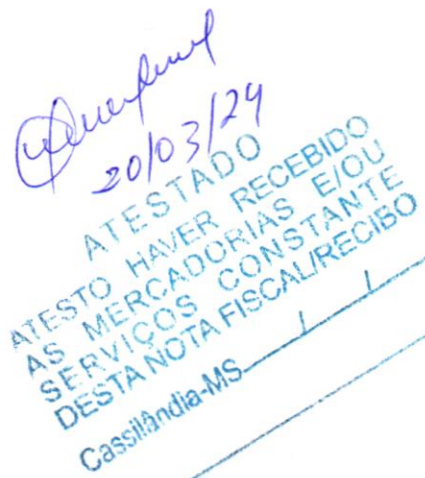 20/03/24
ATESTADO
ATESTO HAVER RECEBIDO
AS MERCADORIAS E/OU
SERVIÇOS CONSTANTE
DESTA NOTA FISCAL/RECIBO
Cassilândia-MS / /